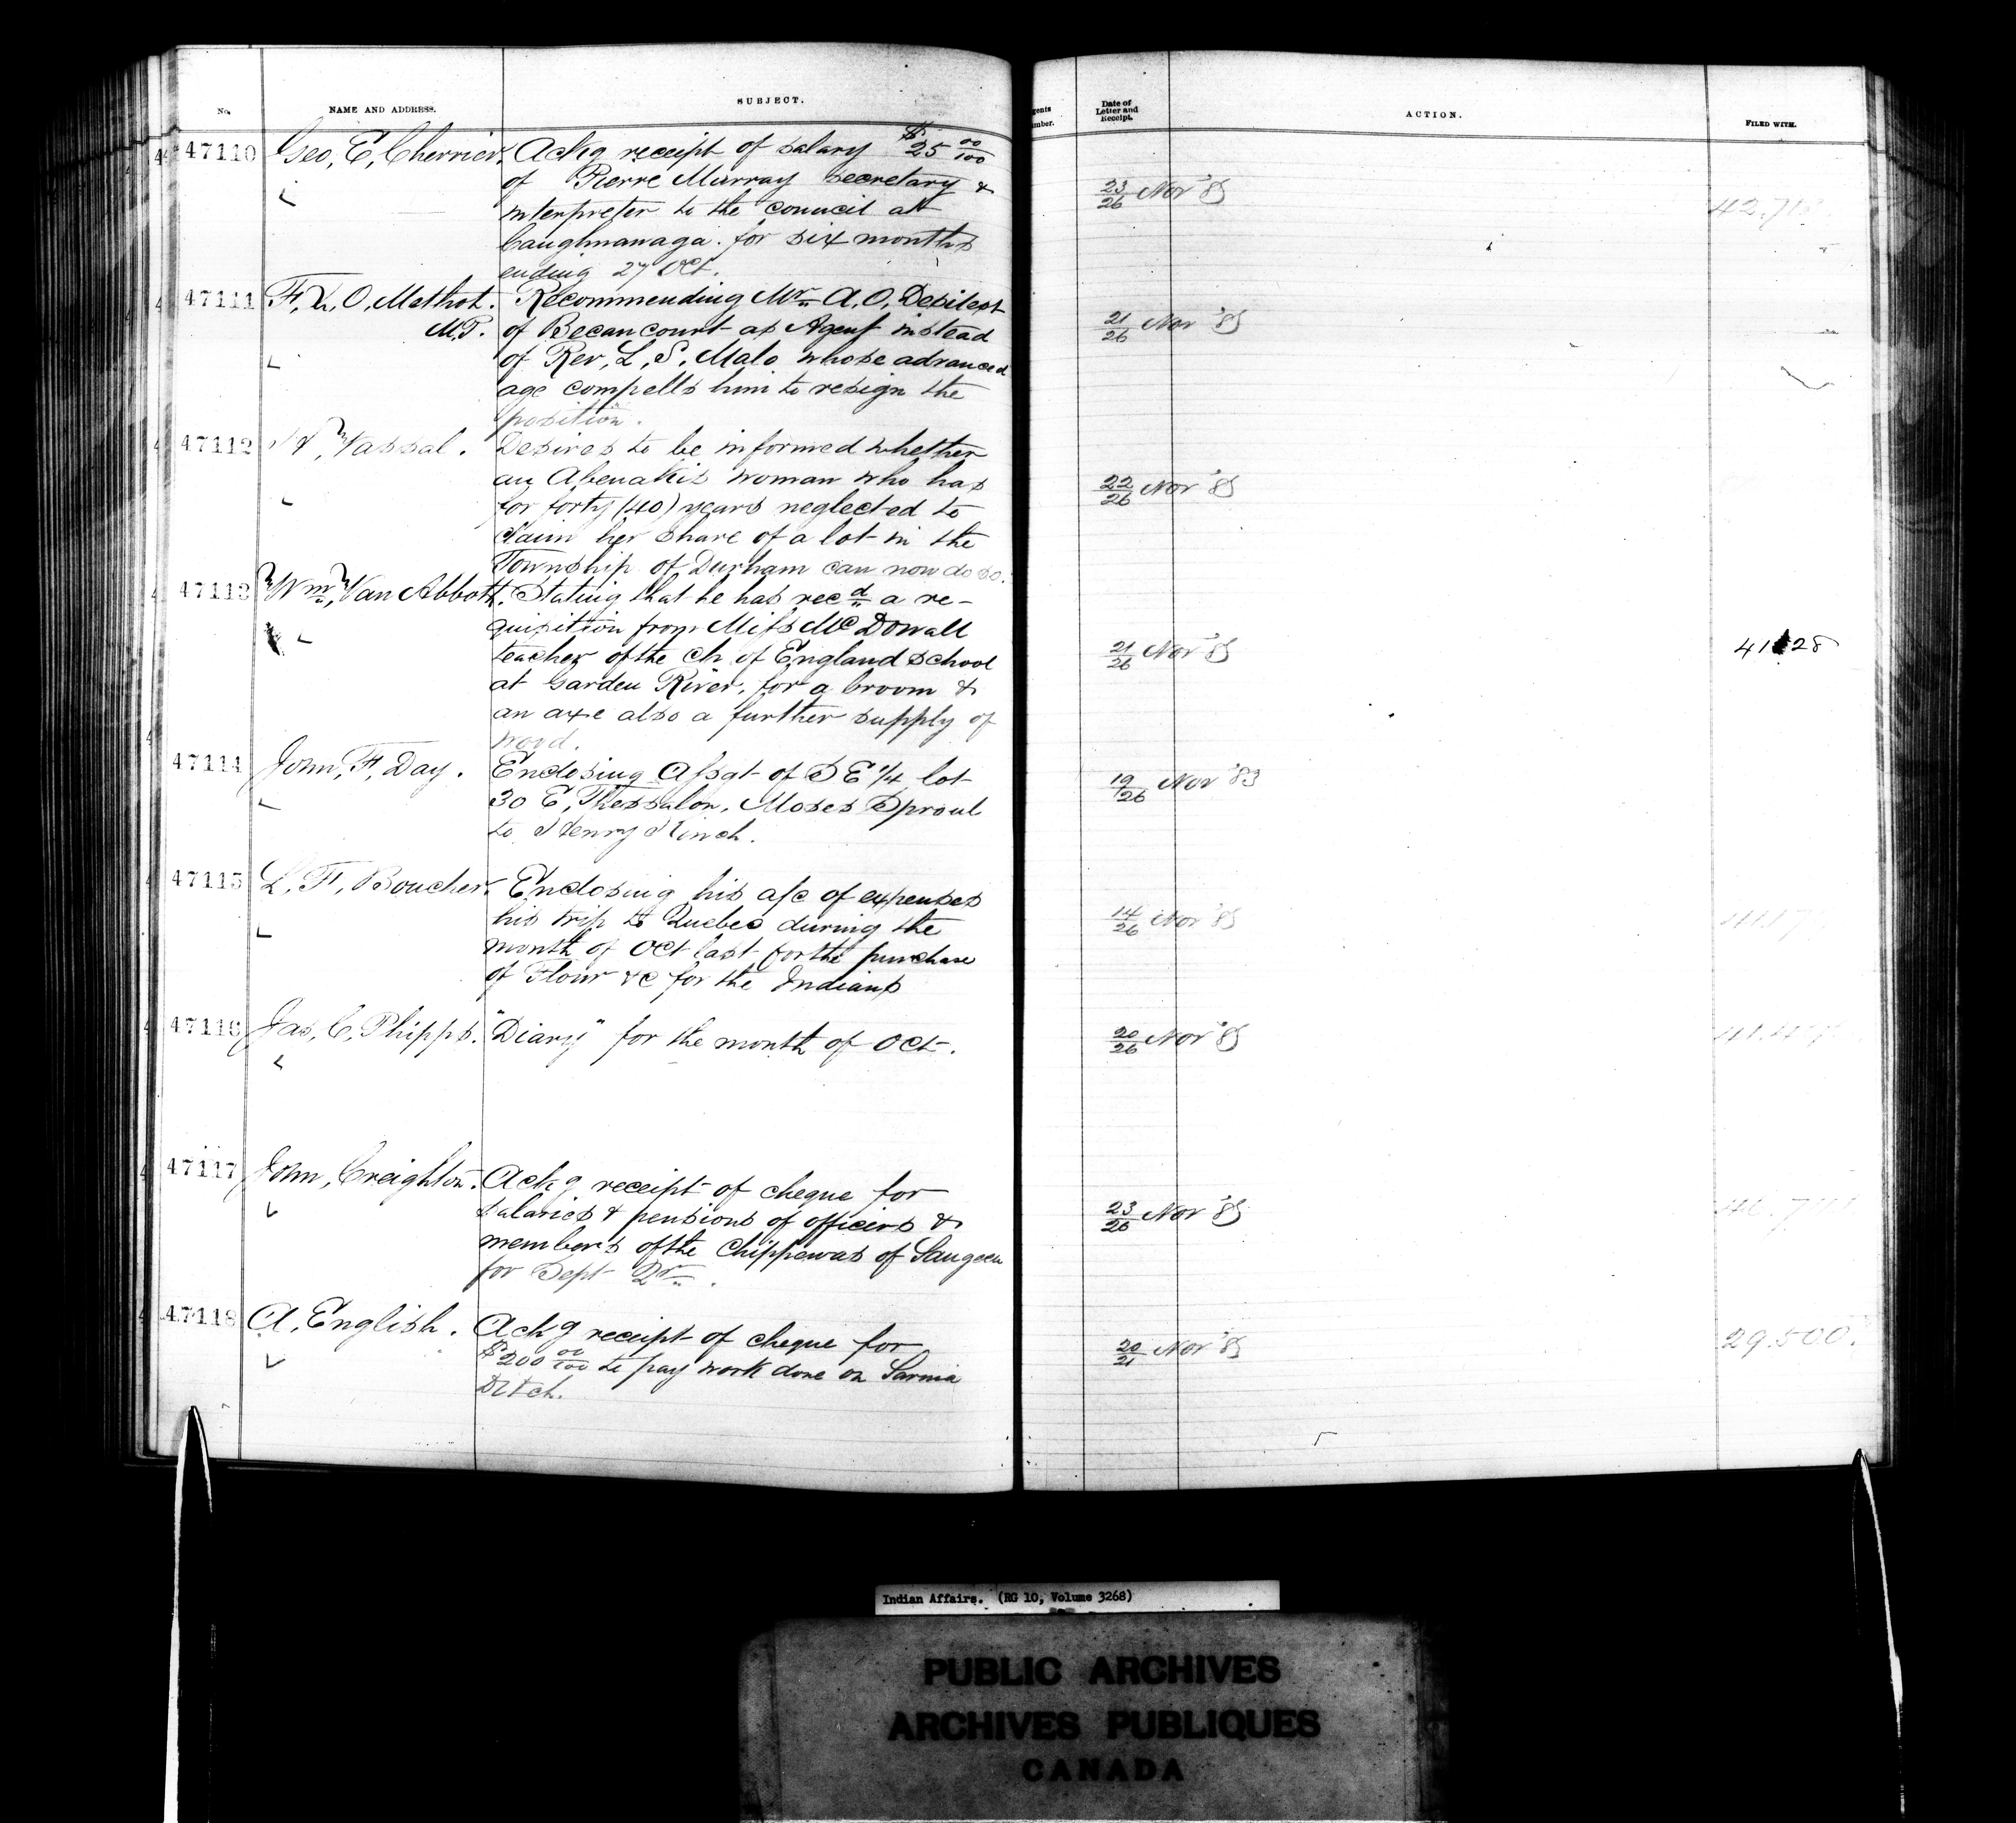 No.
NAME AND ADDRESS.
SUBJECT.
gents
mber.
Date of
Letter and
Receipt.
ACTION.
FILED WITH.
47110 Geo, E, Cherrier. Ackg receipt of salary $25 00/100
of Pierre Murray secretary &
interpreter to the council at
Caughnawaga. for six months
ending 27 Oct.
23/26 Nov '85
47111 F, X, O, Methot. Recommending Mr. A. O, Desilest
M.P. of Becancourt as Agent instead
of Rev, L, S, Malo whose advanced
age compells him to resign the
position.
21/26 Nov '85
47112 Vassal. Desires to be informed whether
an Abenakis woman who has
for forty (40) years neglected to
claim her share of a lot in the
Township of Durham can now do so.
22/26 Nov '85
47113 Wm, Van Abbott. Stating that he has recd a re-
quisition from Miss McDowall
teacher of the Ch. of England School
at Garden River, for a broom &
an axe also a further supply of
wood.
21/26 Nov '85
47114 John, F, Day. Enclosing Assgt of S E 1/4 lot
30 E, Thessalon, Moses Sproul
to Henry Hinch.
19/26 Nov '83
47115 L, F, Boucher. Enclosing his a/c of expenses
his trip to Quebec during the
month of Oct last for the purchase
of Flour &c for the Indians
14/26 Nov '85
47116 Jas, C, Phipps. "Diary" for the month of Oct.
20/26 Nov '85
47117 John, Creighton. Ackg receipt of cheque for
salaries & pensions of officers &
members of the Chippewas of Saugeen
for Sept Qr.
23/26 Nov '85
47118 A, English. Ackg receipt of cheque for
$200 00/100 to pay work done on Sarnia
Ditch.
20/21 Nov '85
29.500.
Indian Affairs. (RG 10, Volume 3268)
PUBLIC ARCHIVES
ARCHIVES PUBLIQUES
CANADA